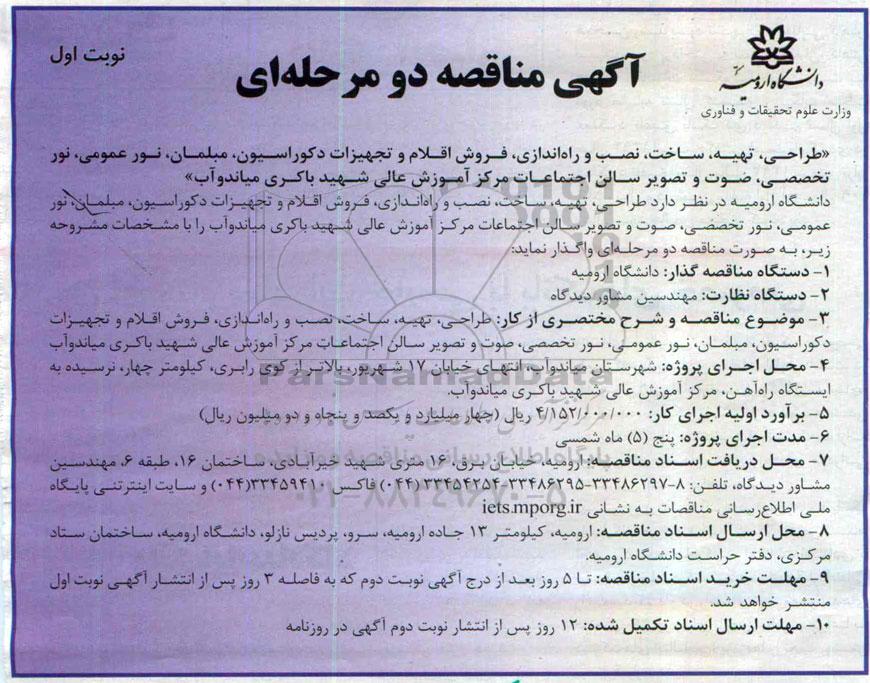 دانشگاه ارومیه
وزارت علوم تحقیقات و فناوری
نوبت اول
آگهی مناقصه دو مرحله‌ای
«طراحی، تهیه، ساخت، نصب و راه‌اندازی، فروش اقلام و تجهیزات دکوراسیون، مبلمان، نور عمومی، نور
تخصصی، صوت و تصویر سالن اجتماعات مرکز آموزش عالی شهید باکری میاندوآب»
دانشگاه ارومیه در نظر دارد طراحی، تهیه، ساخت، نصب و راه‌اندازی، فروش اقلام و تجهیزات دکوراسیون، مبلمان، نور
عمومی، نور تخصصی، صوت و تصویر سالن اجتماعات مرکز آموزش عالی شهید باکری میاندوآب را با مشخصات مشروحه
زیر، به صورت مناقصه دو مرحله‌ای واگذار نماید:
۱- دستگاه مناقصه گذار: دانشگاه ارومیه
۲- دستگاه نظارت: مهندسین مشاور دیدگاه
۳- موضوع مناقصه و شرح مختصری از کار: طراحی، تهیه، ساخت، نصب و راه‌اندازی، فروش اقلام و تجهیزات
دکوراسیون، مبلمان، نور عمومی، نور تخصصی، صوت و تصویر سالن اجتماعات مرکز آموزش عالی شهید باکری میاندوآب
۴- محل اجرای پروژه: شهرستان میاندوآب، انتهای خیابان ۱۷ شهریور، بالاتر از کوی رابری، کیلومتر چهار، نرسیده به
ایستگاه راه‌آهن، مرکز آموزش عالی شهید باکری میاندوآب.
۵- برآورد اولیه اجرای کار: ۴/۱۵۲/۰۰۰/۰۰۰ ریال (چهار میلیارد و یکصد و پنجاه و دو میلیون ریال)
۶- مدت اجرای پروژه: پنج (۵) ماه شمسی
۷- محل دریافت اسناد مناقصه: ارومیه، خیابان برق، ۱۶ متری شهید خیرآبادی، ساختمان ۱۶، طبقه ۶، مهندسین
مشاور دیدگاه، تلفن: ۸-۳۳۴۸۶۲۹۷-۳۳۴۸۶۲۹۵-۳۳۴۵۴۲۵۴ (۰۴۴) فاکس ۳۳۴۵۹۴۱۰(۰۴۴) و سایت اینترنتی پایگاه
ملی اطلاع‌رسانی مناقصات به نشانی iets.mporg.ir
۸- محل ارسال اسناد مناقصه: ارومیه، کیلومتر ۱۳ جاده ارومیه، سرو، پردیس نازلو، دانشگاه ارومیه، ساختمان ستاد
مرکزی، دفتر حراست دانشگاه ارومیه.
۹- مهلت خرید اسناد مناقصه: تا ۵ روز بعد از درج آگهی نوبت دوم که به فاصله ۳ روز پس از انتشار آگهی نوبت اول
منتشر خواهد شد.
۱۰- مهلت ارسال اسناد تکمیل شده: ۱۲ روز پس از انتشار نوبت دوم آگهی در روزنامه
ParsNamadData
پایگاه اطلاع رسانی مناقصه و مزایده
۰۲۱-۸۸۳۴۹۶۷۰-۵